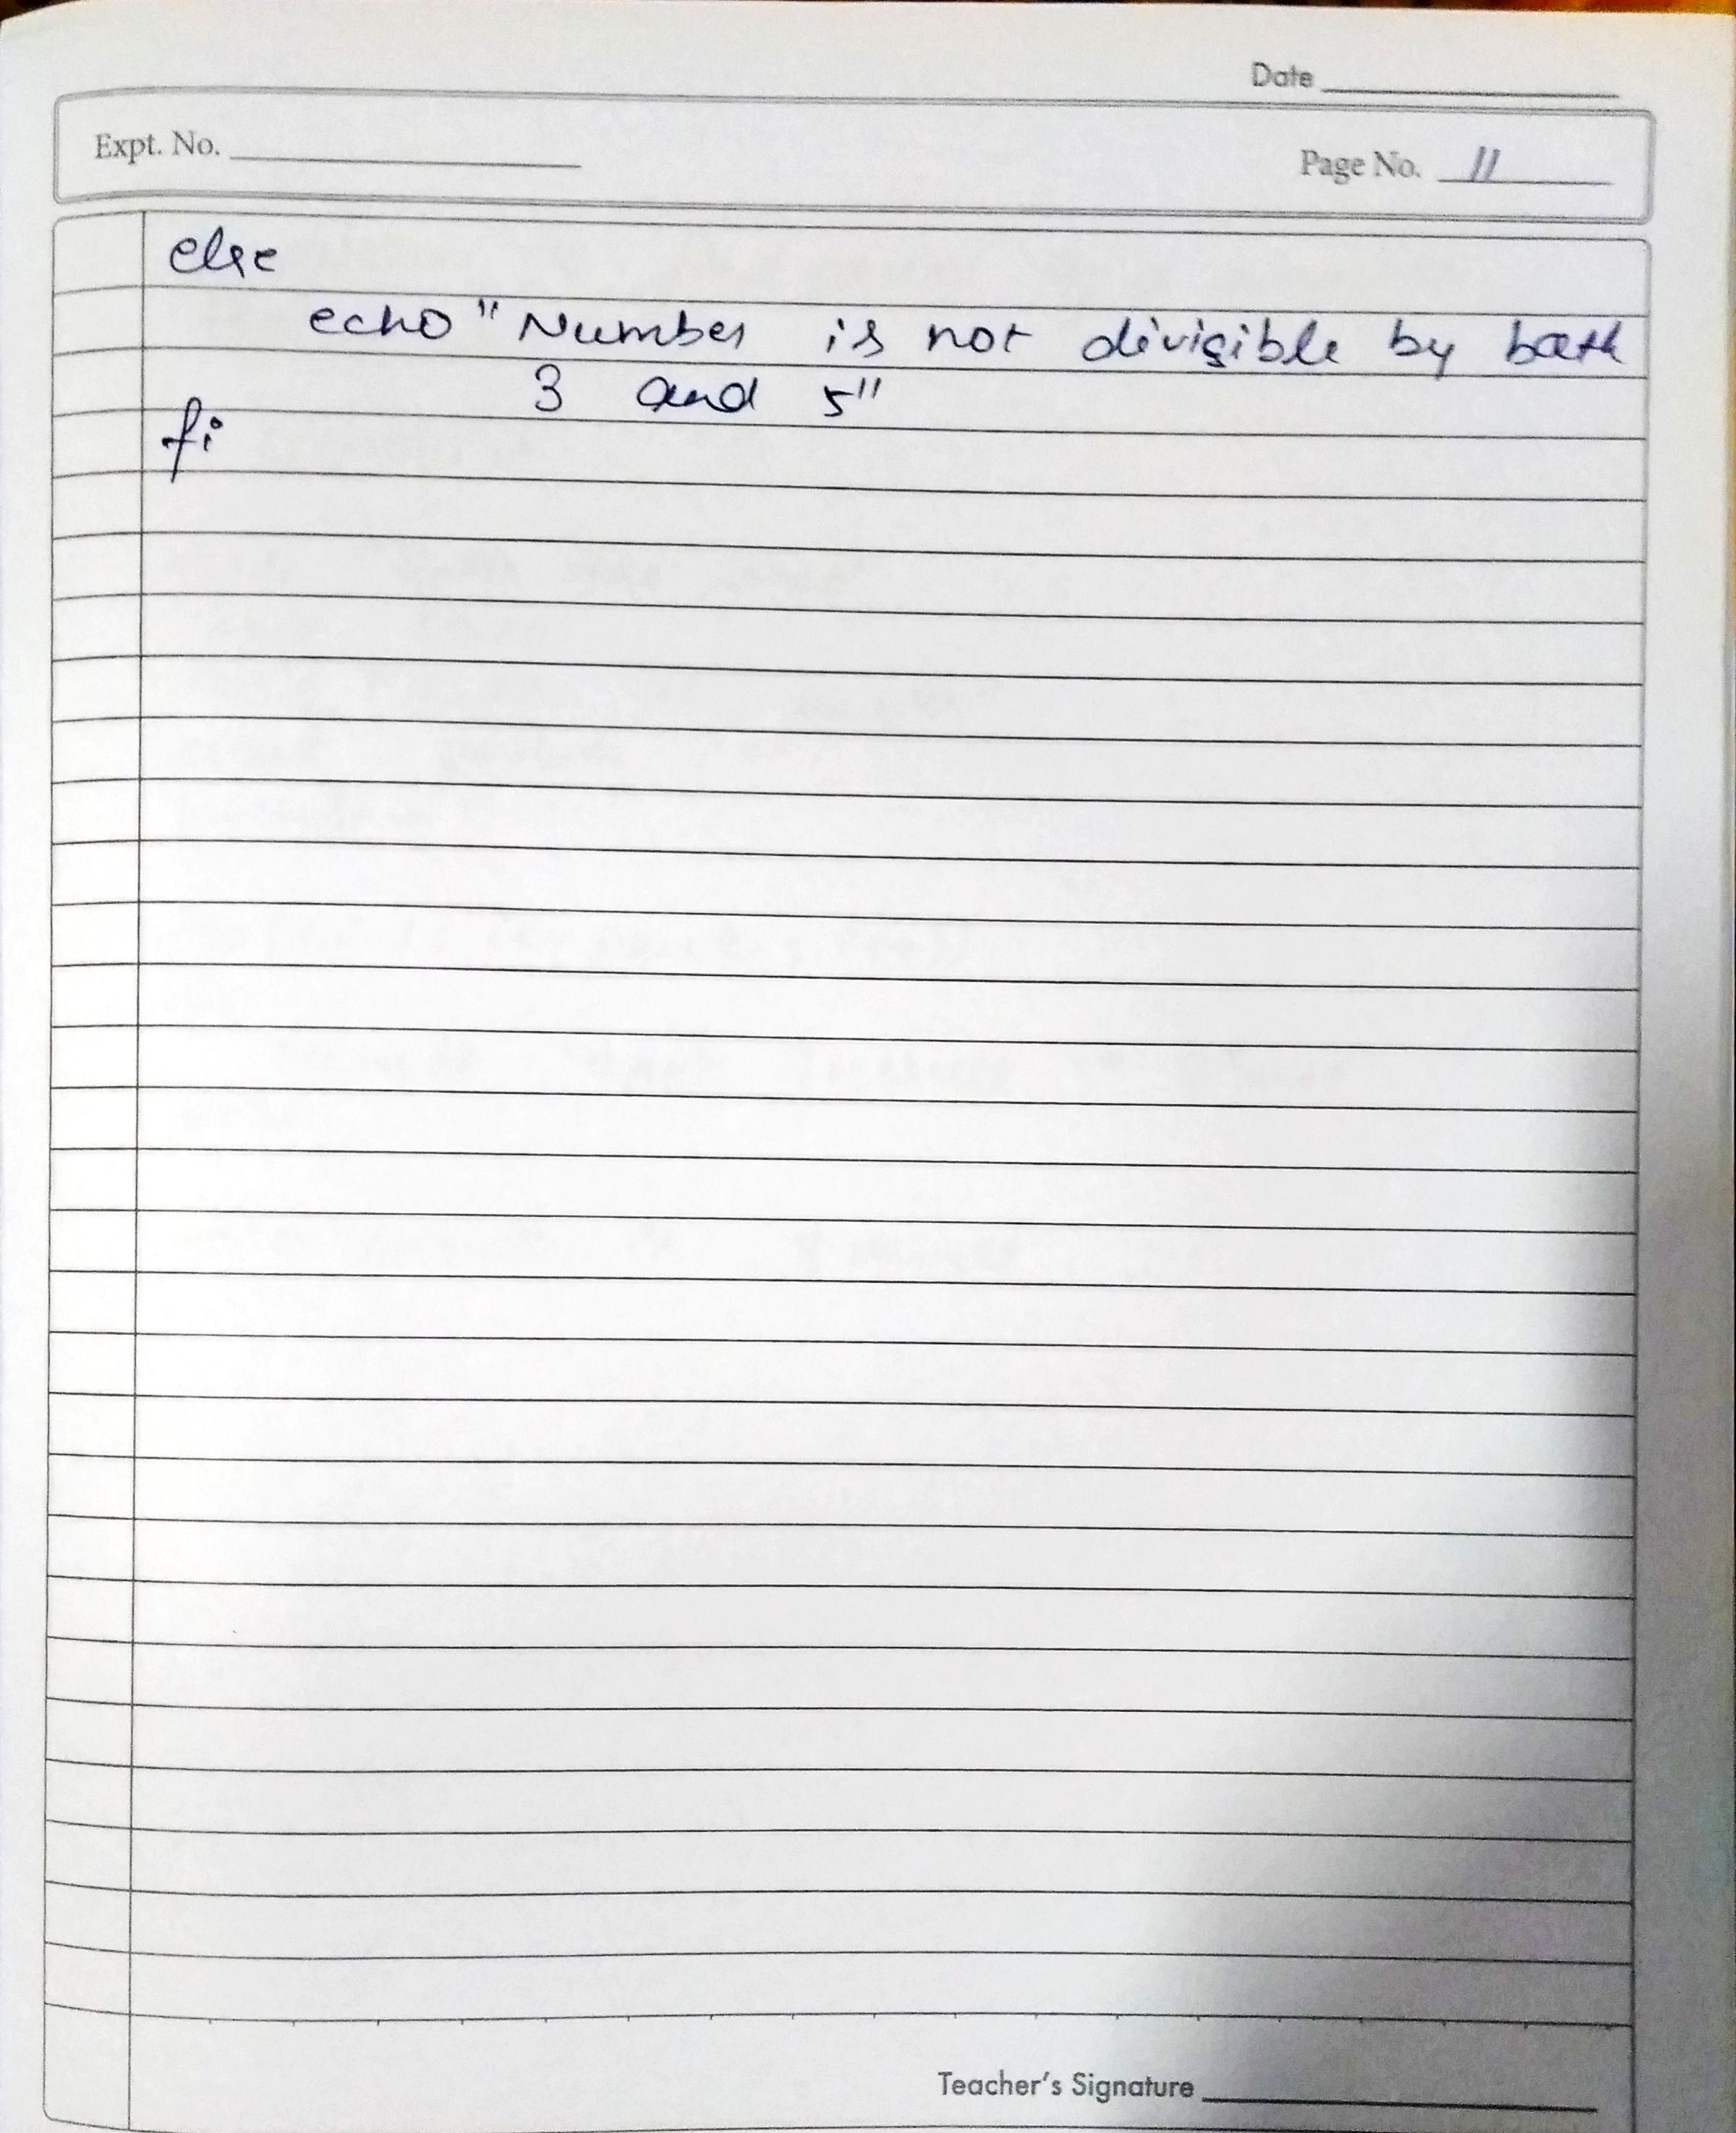 Date
Expt. No.
Page No. 11
else
echo "Number is not divisible by both
3 and 5"
fi
Teacher's Signature